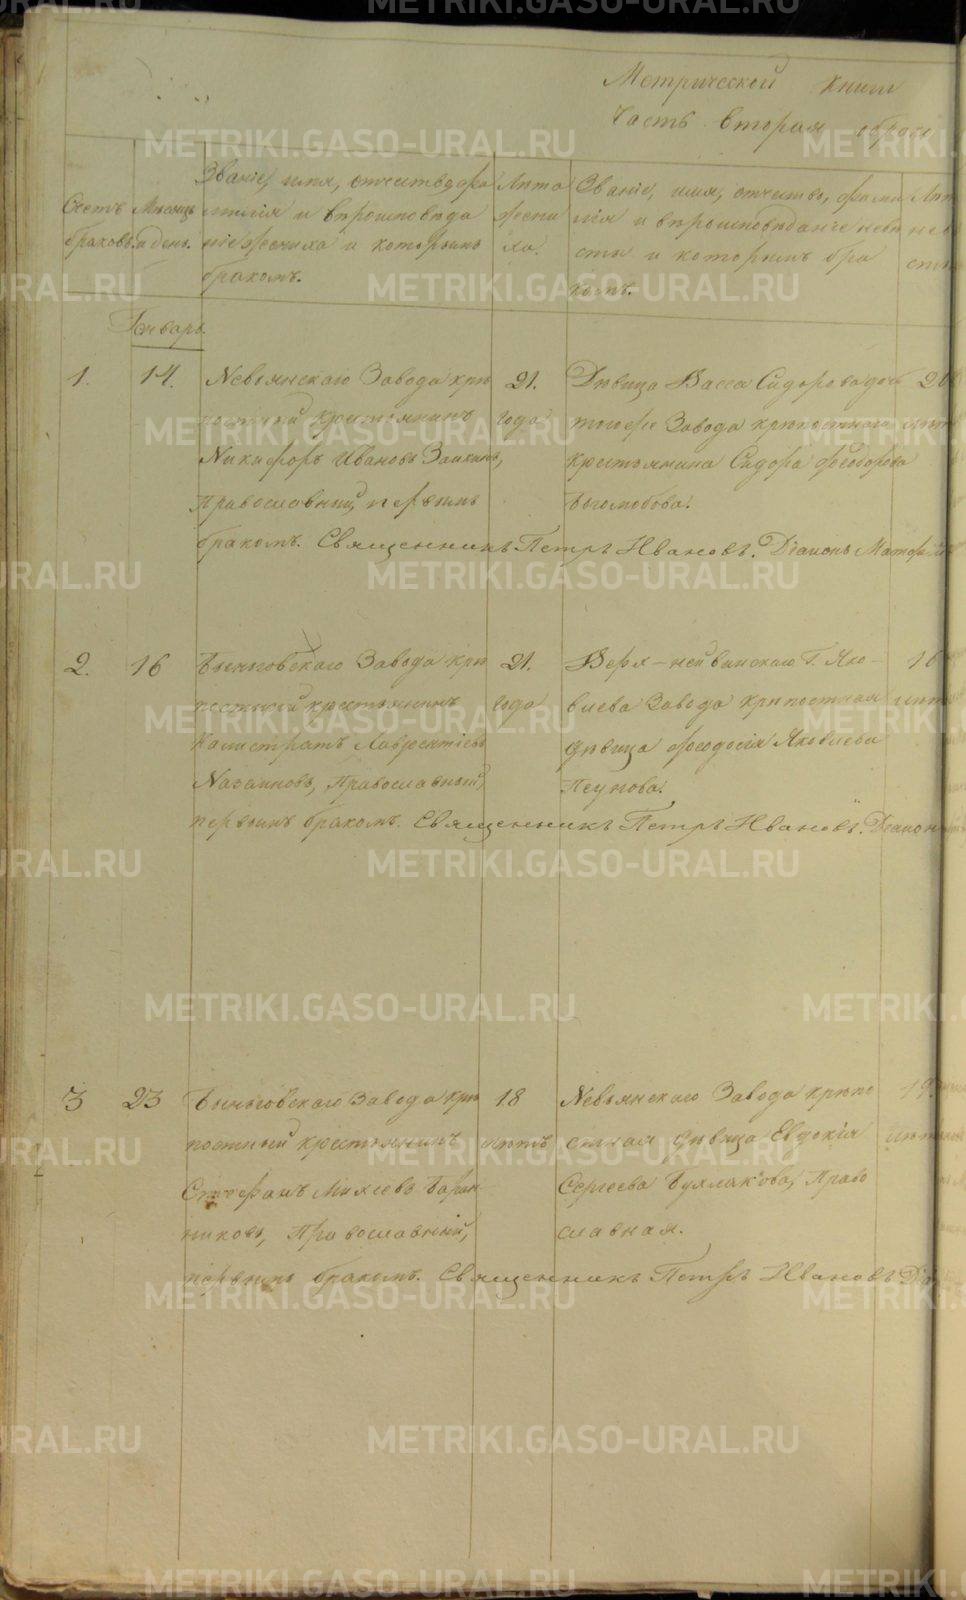 Метрической книги
Часть вторая о брако
Счетъ браковъ.
Месяцъ и день.
Званіе, имя, отчество, фа
милія и вероисповеда
ніе жениха и которымъ
бракомъ.
Лета
жени
ха.
Званіе, имя, отчество, фами
лія и вероисповеданіе неве
сты и которымъ бра
комъ.
Лета
неве
сты
Январь.
1.
14.
Невьянскаго Завода кре
постный крестьянинъ
Никифоръ Ивановъ Заикинъ,
православный, первымъ
бракомъ. Священникъ Петръ Ивановъ. Діаконъ Матфей
21.
года
Девица Васса Сидорова дочь
тогоже Завода крепостнаго
крестьянина Сидора Феодорова
Боголюбова.
20
летъ
2.
16
Быньговскаго Завода кре
постный крестьянинъ
Калистратъ Лаврентіевъ
Казанковъ, Православный,
первымъ бракомъ. Священникъ Петръ Ивановъ. Діаконъ
21.
года
Верх-нейвинскаго Г. Яко-
влева Завода крепостная
девица Феодосія Яковлева
16
летъ
3
23
Быньговскаго Завода кре
постный крестьянинъ
Стефанъ Михеевъ Баран
никовъ, Православный,
первымъ бракомъ. Священникъ Петръ Ивановъ Діа
18
летъ
Невьянскаго Завода крепо
стная девица Евдокія
Сергеева Бурлакова, Право
славная.
19.
летъ
METRIKI.GASO-URAL.RU